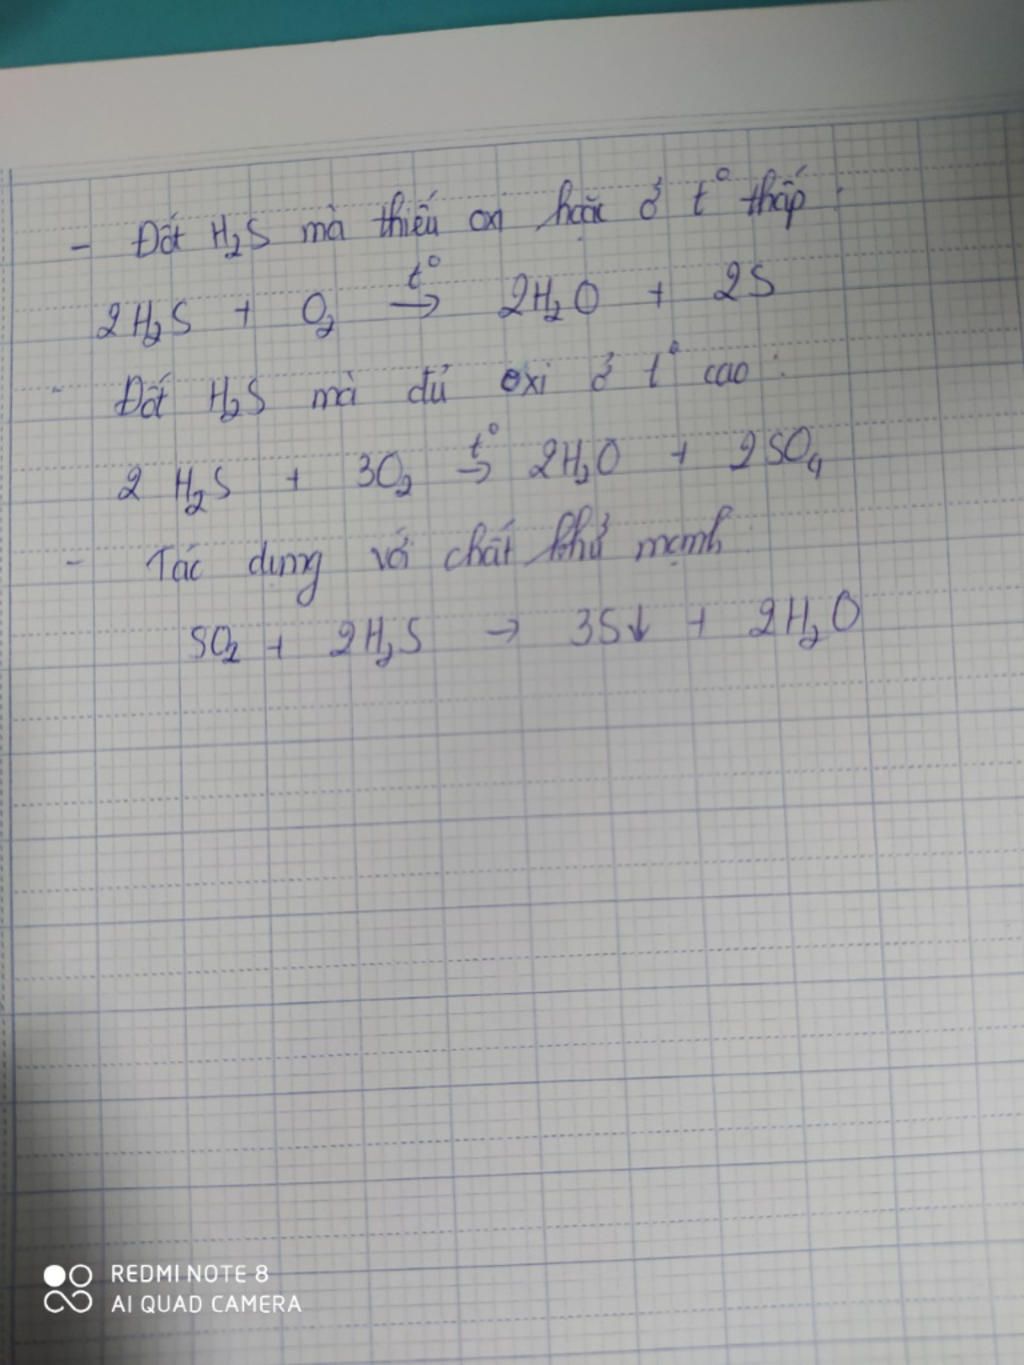 - Đốt H₂S mà thiếu oxi hoặc ở t° thấp :
2H₂S + O₂ t°→ 2H₂O + 2S
- Đốt H₂S mà đủ oxi ở t° cao :
2 H₂S + 3O₂ t°→ 2H₂O + 2SO₄
- Tác dụng với chất khử mạnh
SO₂ + 2H₂S → 3S↓ + 2H₂O
REDMI NOTE 8
AI QUAD CAMERA